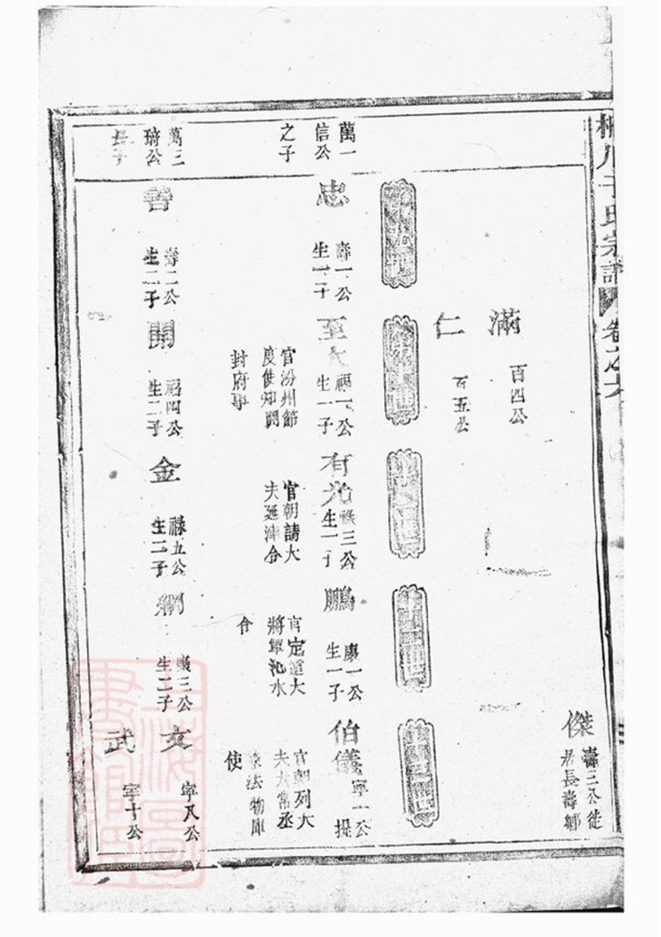 宗譜
卷之六
傑
壽三公徙
居長壽鄉
滿
百四公
仁
百五公
萬一
信公
之子
忠
壽一公
生一子
福一公
生一子
官汾州節
度使知開
封府事
有光
祿三公
生一子
官朝請大
夫延津令
鵬
康一公
生一子
官定遠大
將軍沁水
令
伯儀
寧一公
提
官朝列大
夫太常丞
法物庫
使
萬三
琦公
長子
壽二公
生二子
開
福四公
生二子
金
祿五公
生二子
康三公
生二子
文
寧八公
武
寧十公